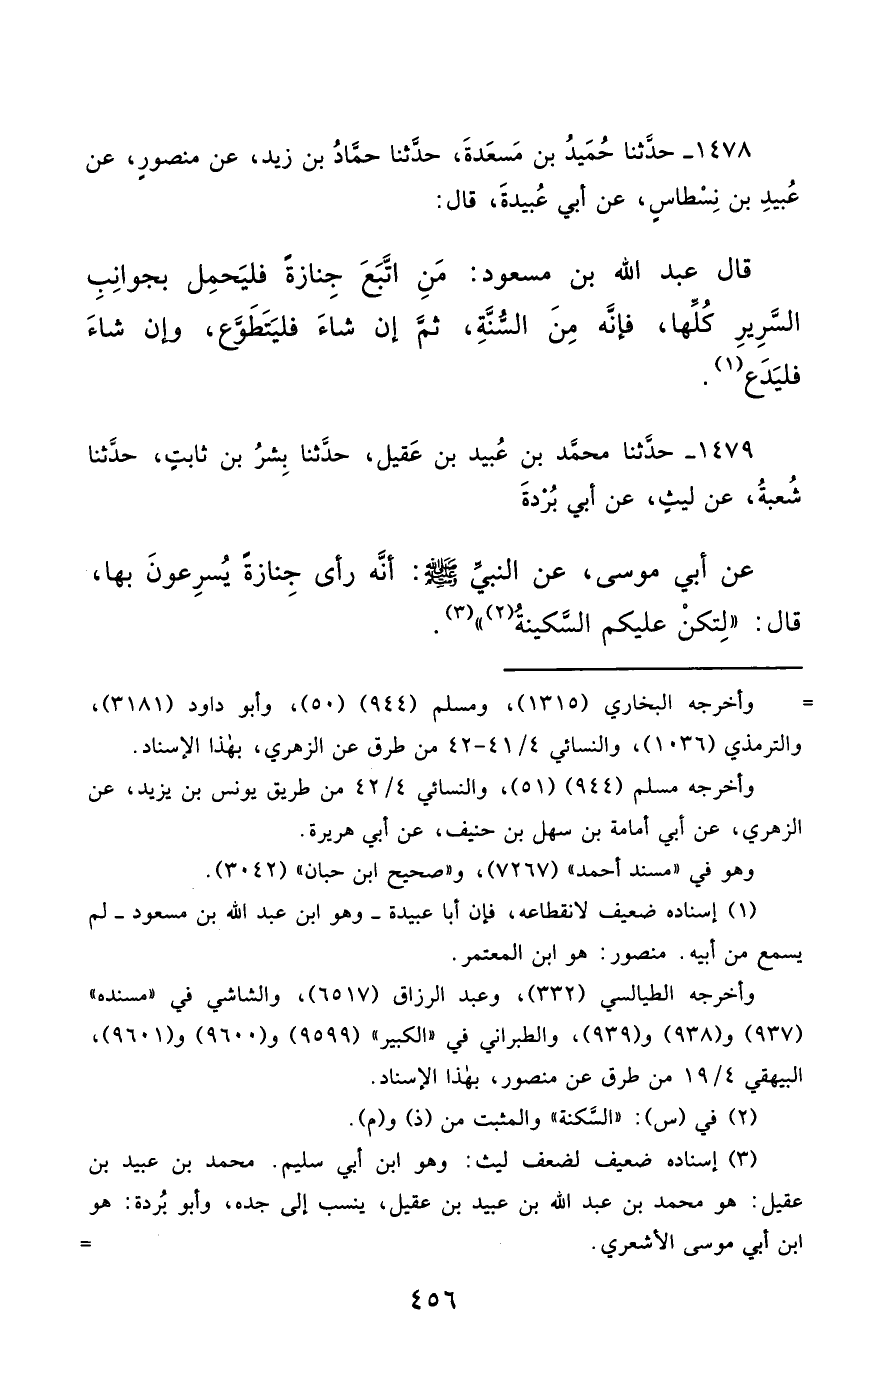 ١٤٧٨ـ حدَّثنا حُمَيدُ بن مَسعَدةَ، حدَّثنا حمَّادُ بن زيد، عن منصورٍ، عن
عُبيدِ بن نِسْطاسٍ، عن أبي عُبيدةَ، قال:
قال عبد الله بن مسعود: مَنِ اتَّبَعَ جِنازةً فليَحمِل بجوانِبِ
السَّرِيرِ كُلِّها، فإنَّه مِنَ السُّنَّةِ، ثمَّ إن شاءَ فليَتَطَوَّع، وإن شاءَ
فليَدَع(١).
١٤٧٩ـ حدَّثنا محمَّد بن عُبيد بن عَقيل، حدَّثنا بِشرُ بن ثابتٍ، حدَّثنا
شُعبةُ، عن ليثٍ، عن أبي بُرْدةَ
عن أبي موسى، عن النبيِّ ﷺ: أنَّه رأى جِنازةً يُسرِعونَ بها،
قال: «لِتكنْ عليكم السَّكينةُ(٢)»(٣).
= وأخرجه البخاري (١٣١٥)، ومسلم (٩٤٤) (٥٠)، وأبو داود (٣١٨١)،
والترمذي (١٠٣٦)، والنسائي ٤/ ٤١-٤٢ من طرق عن الزهري، بهٰذا الإسناد.
وأخرجه مسلم (٩٤٤) (٥١)، والنسائي ٤/ ٤٢ من طريق يونس بن يزيد، عن
الزهري، عن أبي أمامة بن سهل بن حنيف، عن أبي هريرة.
وهو في «مسند أحمد» (٧٢٦٧)، و«صحيح ابن حبان» (٣٠٤٢).
(١) إسناده ضعيف لانقطاعه، فإن أبا عبيدة ـ وهو ابن عبد الله بن مسعود ـ لم
يسمع من أبيه. منصور: هو ابن المعتمر.
وأخرجه الطيالسي (٣٣٢)، وعبد الرزاق (٦٥١٧)، والشاشي في «مسنده»
(٩٣٧) و(٩٣٨) و(٩٣٩)، والطبراني في «الكبير» (٩٥٩٩) و(٩٦٠٠) و(٩٦٠١)،
البيهقي ٤/ ١٩ من طرق عن منصور، بهٰذا الإسناد.
(٢) في (س): «السَّكنة» والمثبت من (ذ) و(م).
(٣) إسناده ضعيف لضعف ليث: وهو ابن أبي سليم. محمد بن عبيد بن
عقيل: هو محمد بن عبد الله بن عبيد بن عقيل، ينسب إلى جده، وأبو بُردة: هو
ابن أبي موسى الأشعري. =
٤٥٦